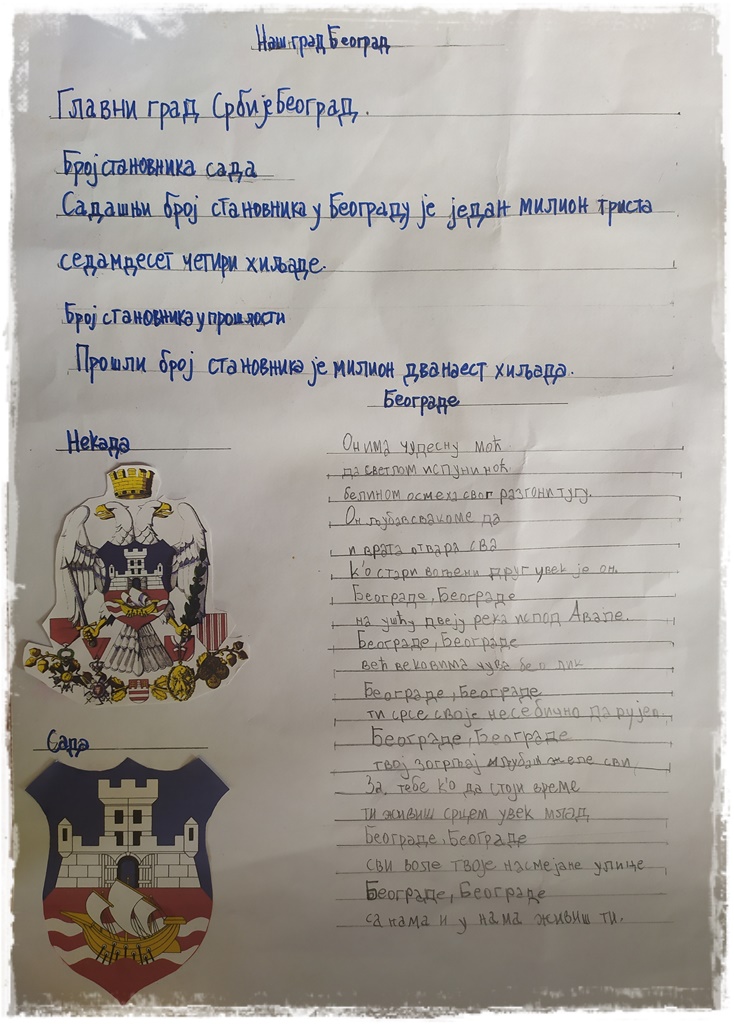 Наш град Београд
Главни град Србије Београд.
Број становника сада
Садашњи број становника у Београду је један милион триста
седамдесет четири хиљаде.
Број становника у прошлости
Прошли број становника је милион дванаест хиљада.
Београде
Некада
Он има чудесну моћ
да светлом испуни ноћ
белином осмеха свог разгони тугу.
Он љубав свакоме да
и врата отвара сва
к'о стари вољени друг увек је он.
Београде, Београде
на ушћу двеју река испод Авале.
Београде, Београде
већ вековима чува бео лик
Београде, Београде
ти срсе своје несебично дарујеш.
Београде, Београде
твој загрљај и љубав желе сви
За, тебе к'о да стоји време
ти живиш срцем увек млад
Београде, Београде
сви воле твоје насмејане улице
Београде, Београде
са нама и у нама живиш ти.
Сада